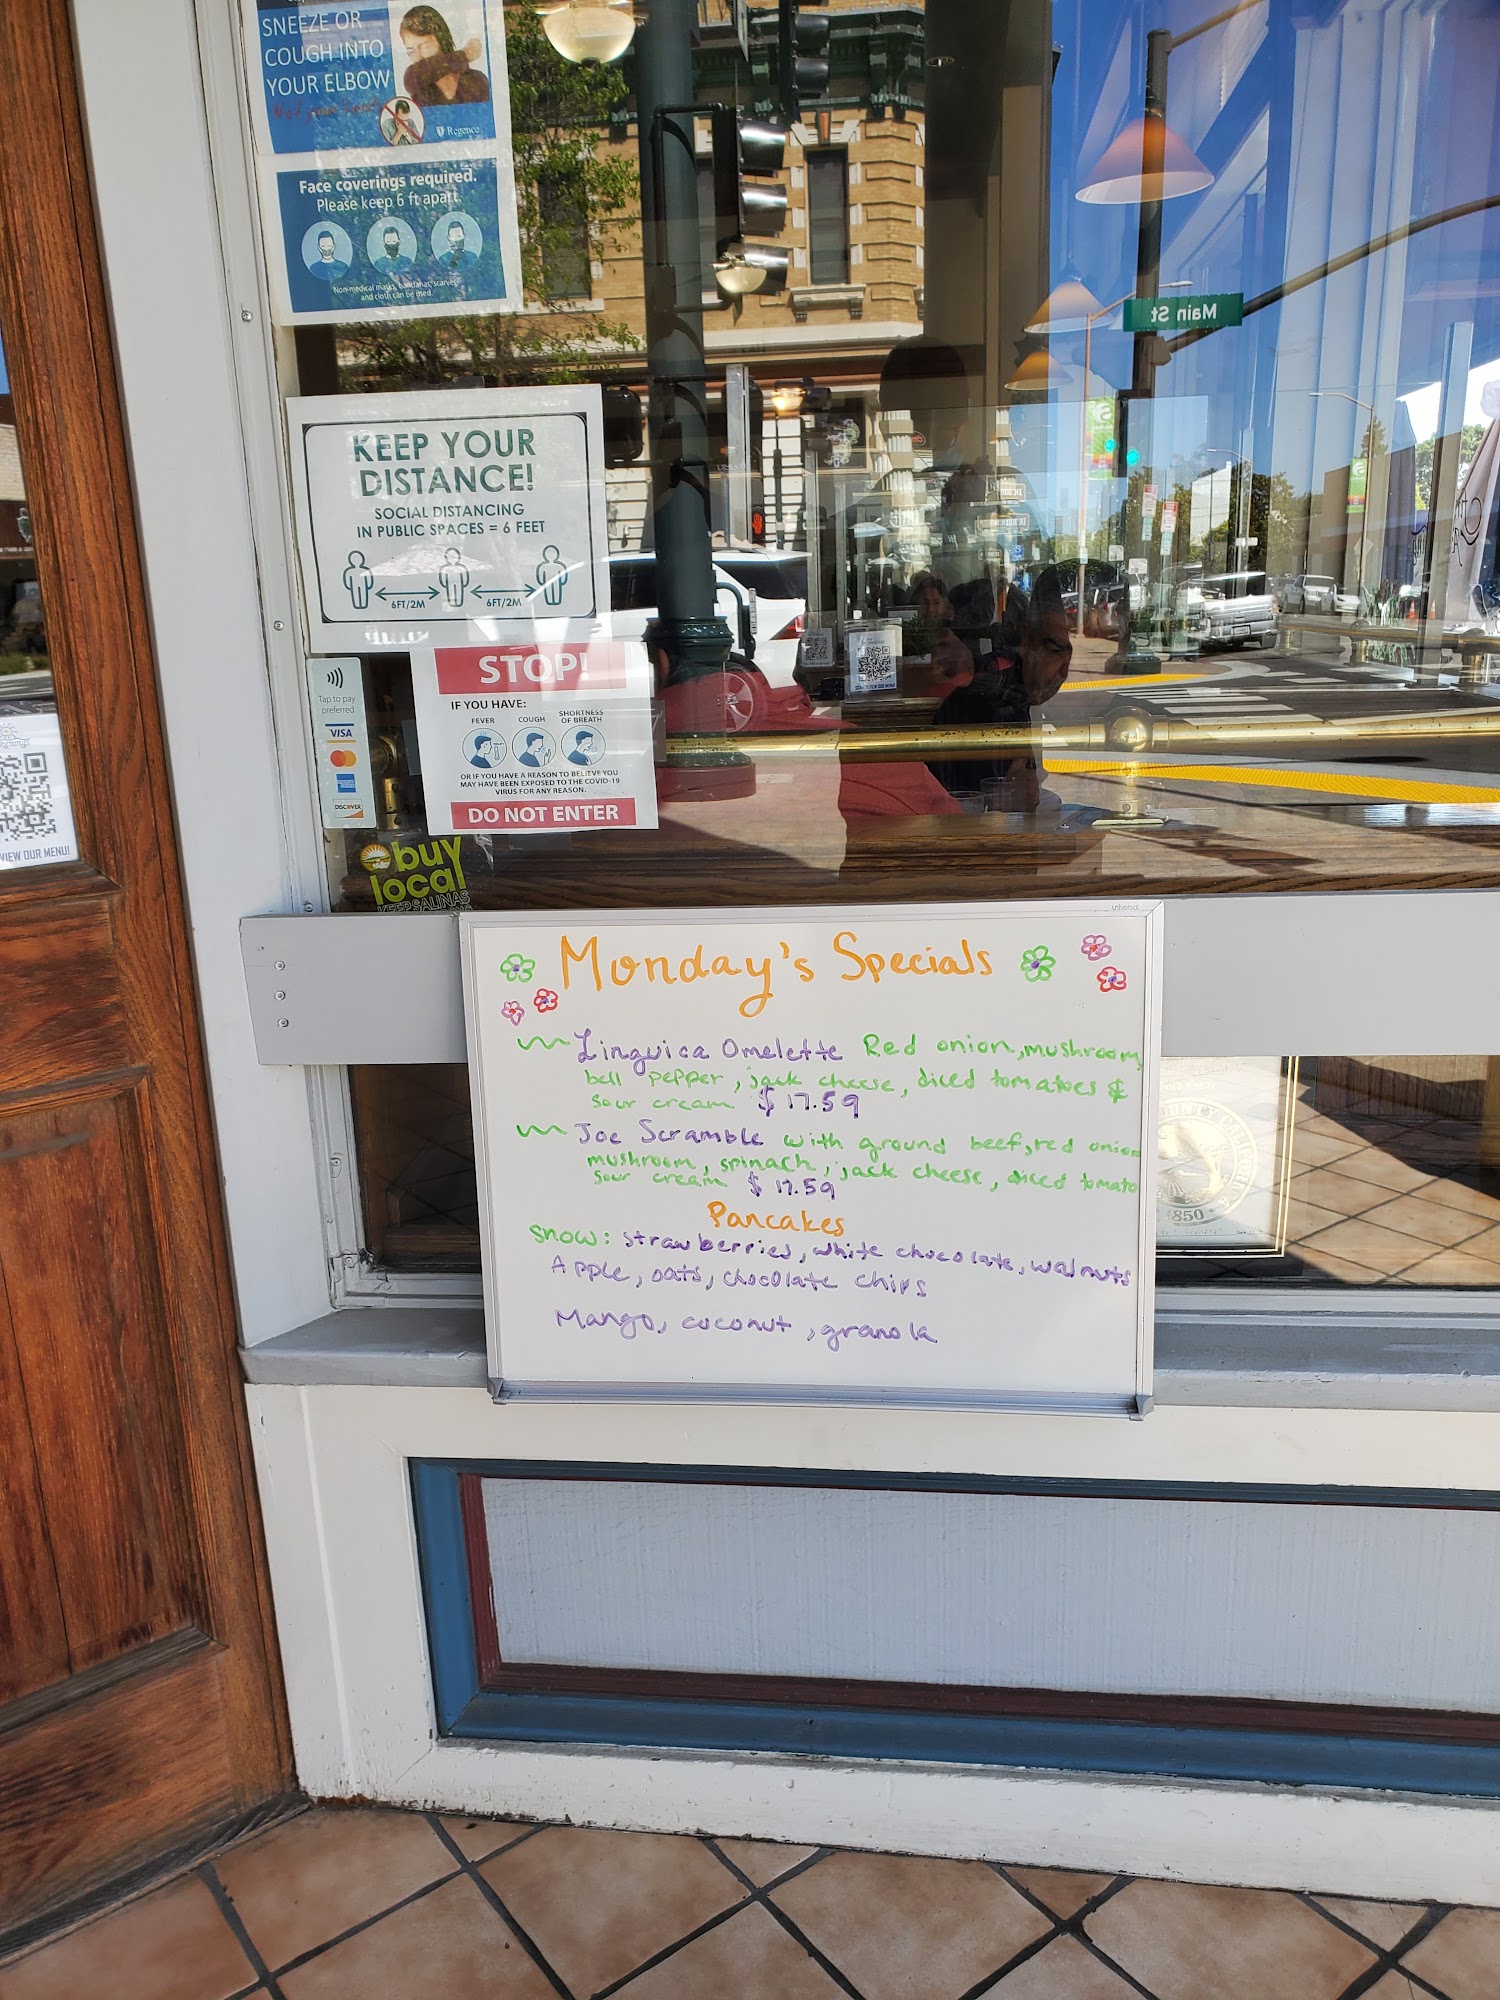 SNEEZE OR
COUGH INTO
YOUR ELBOW
Not your hands
Regence
Face coverings required.
Please keep 6 ft apart.
Non-medical masks, bandanas, scarves
and cloth can be used.
Main St
KEEP YOUR
DISTANCE!
SOCIAL DISTANCING
IN PUBLIC SPACES = 6 FEET
6FT/2M 6FT/2M
Tap to pay
preferred
VISA
DISCOVER
STOP!
IF YOU HAVE:
FEVER COUGH SHORTNESS
OF BREATH
OR IF YOU HAVE A REASON TO BELIEVE YOU
MAY HAVE BEEN EXPOSED TO THE COVID-19
VIRUS FOR ANY REASON.
DO NOT ENTER
VIEW OUR MENU!
buy
local
KEEP SALINAS
universal
Monday's Specials
Linguica Omelette Red onion, mushroom,
bell pepper, jack cheese, diced tomatoes &
sour cream $17.59
Joe Scramble with ground beef, red onion
mushroom, spinach, jack cheese, diced tomato
sour cream $17.59
Pancakes
Snow: strawberries, white chocolate, walnuts
Apple, oats, chocolate chips
Mango, coconut, granola
1850